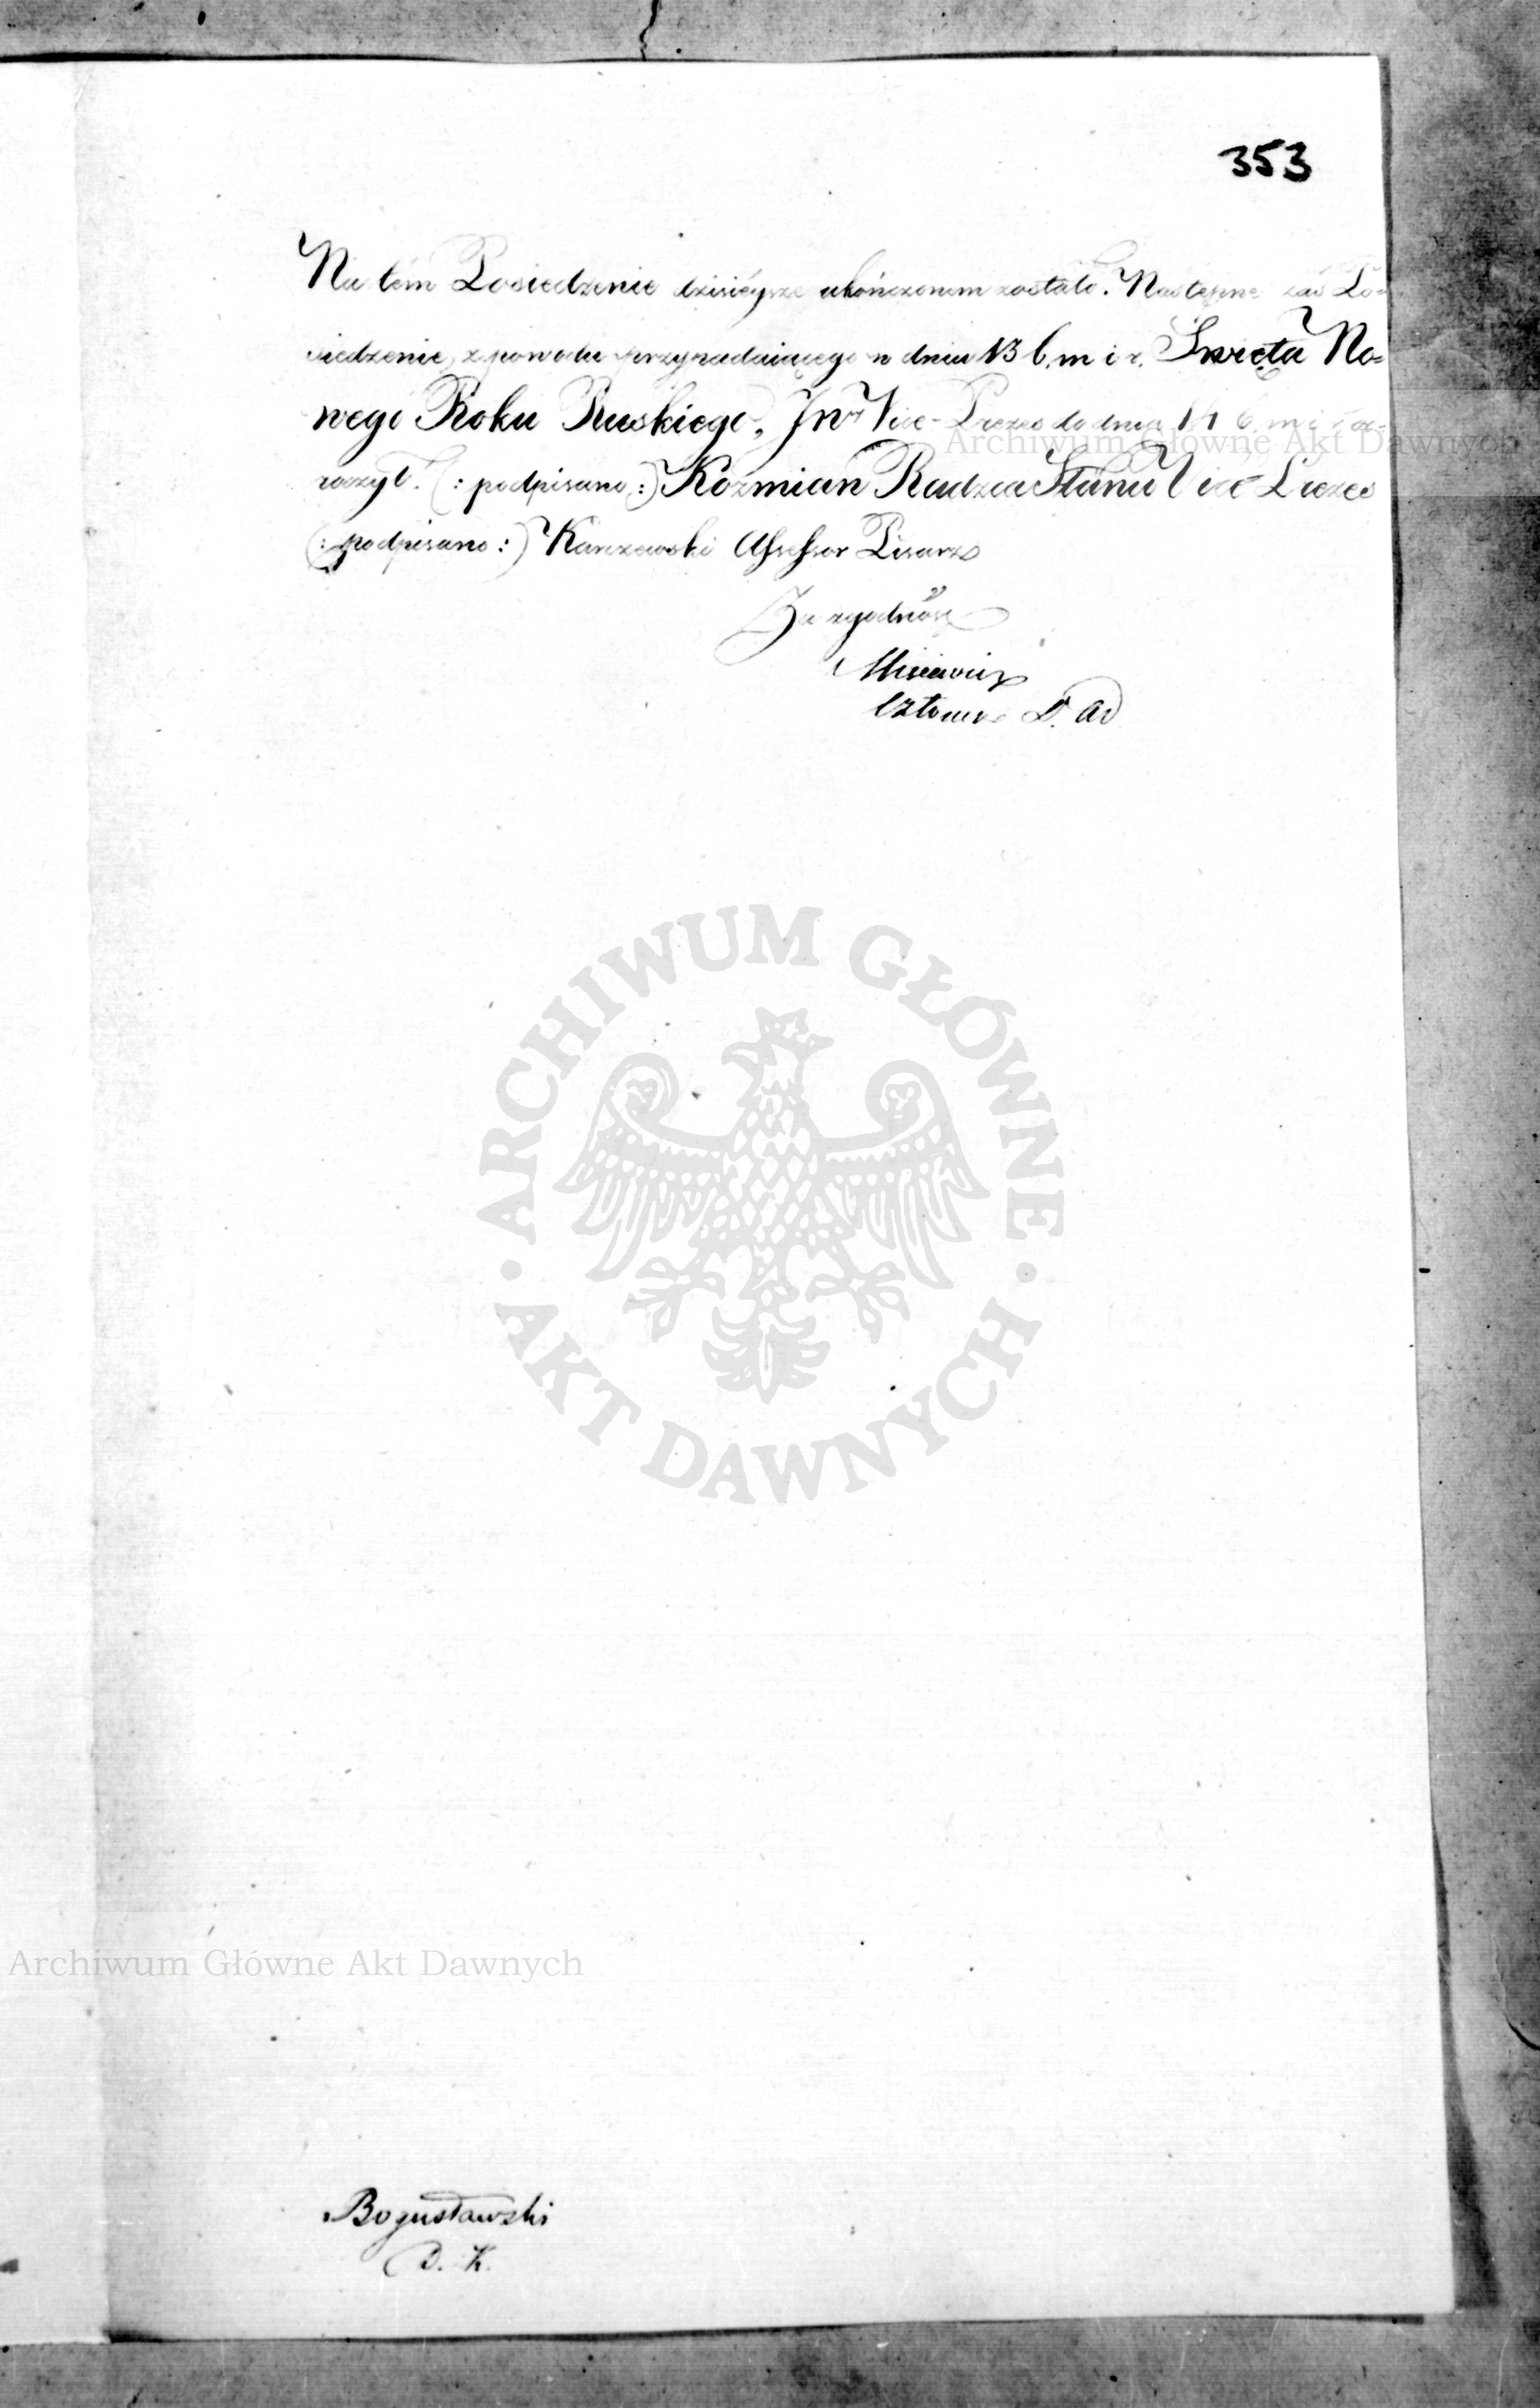 353
Na tém Posiedzenie dzisiéysze ukończonem zostało. Następne zaś Po=
siedzenie, z powodu przypadaiącego w dniu 13 b. m i r. Święta No=
wego Roku Ruskiego, JW Vice-Prezes do dnia 14 b. m i r. oz=
roczył. (: podpisano :) Koźmian Radzca Stanu Vice Prezes
(: podpisano :) Karczewski Assessor Pisarz
Za zgodność
Członek D. A
Archiwum Główne Akt Dawnych
ARCHIWUM GŁÓWNE
AKT DAWNYCH
Archiwum Główne Akt Dawnych
Bogusławski
D. K.